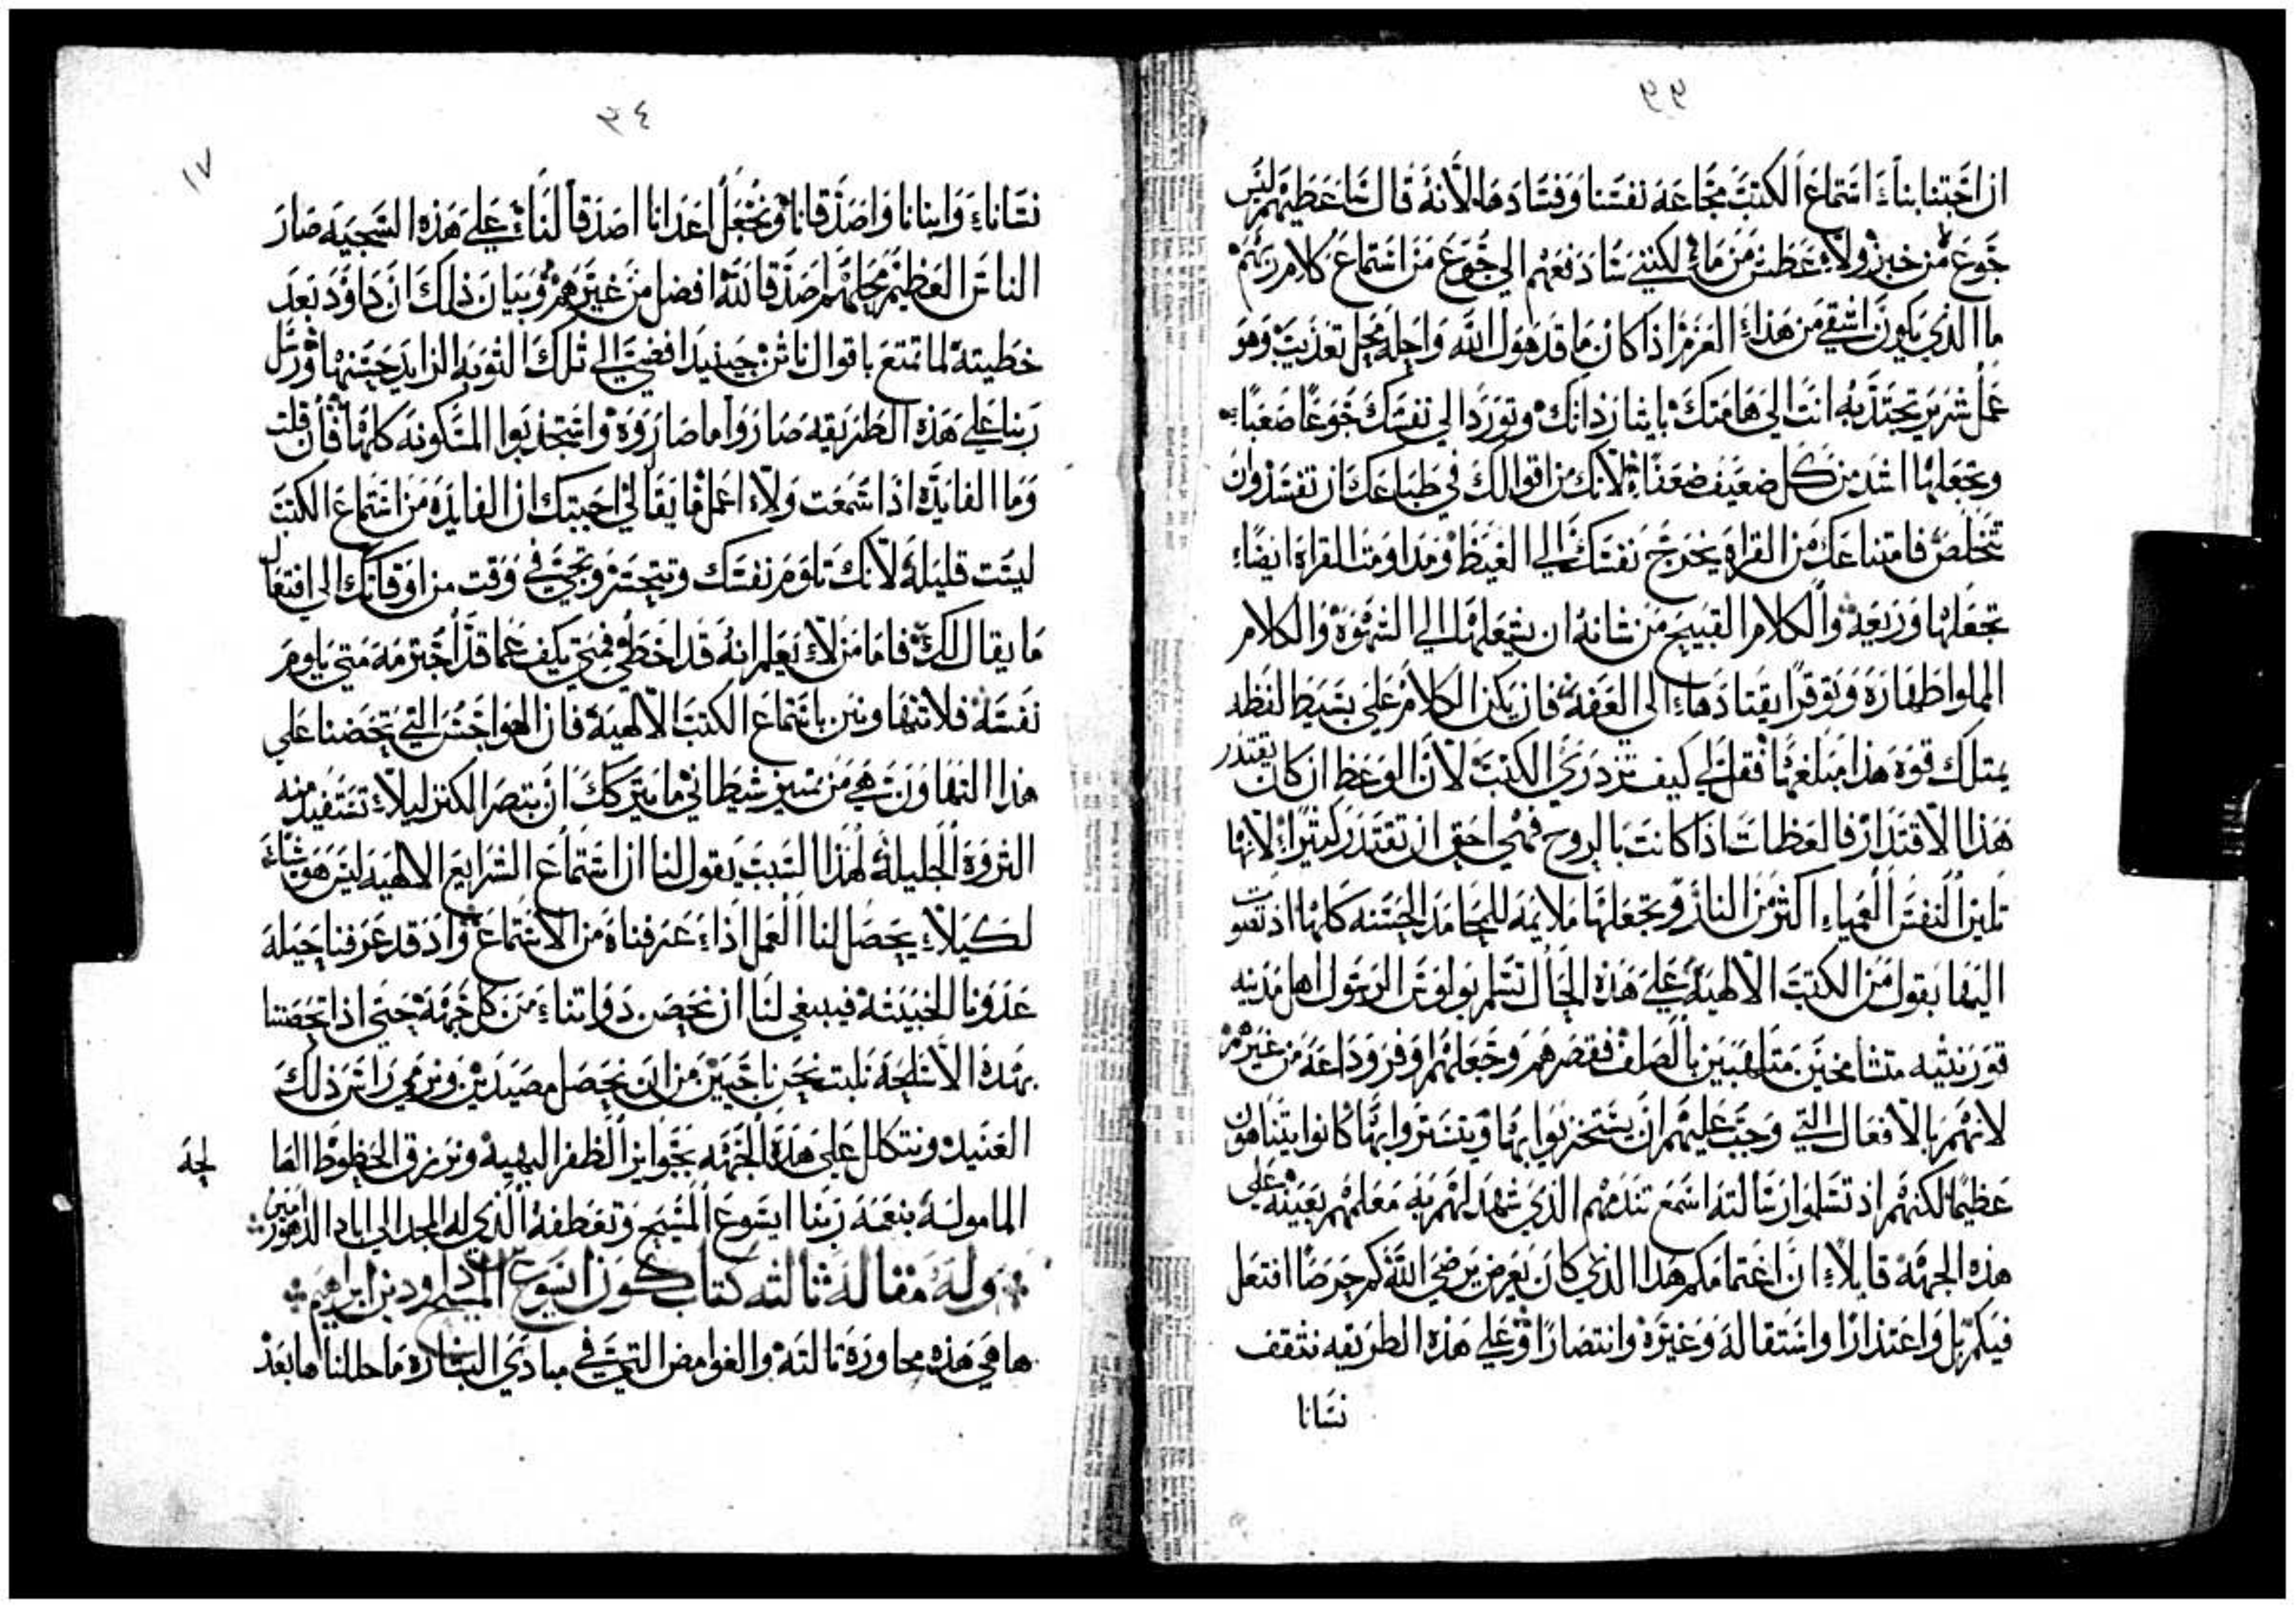 ٣٣
ان اجتنابنا استماع الكتب مجاعة نفسنا وفسادها لانه قال ساعطيهم ليس
جوع من خبز ولا عطش من ماء لكنني سادفعهم الى جوع من استماع كلام ربهم
ما الذي يكون اشقي من هذا العزم اذا كان ما قد هول الله واحله محل تعذيب وهو
عمل شرير تجتذبه انت الي هامتك بايثار ذاتك وتورد الي نفسك جوعا صعبا
وتجعلها اشد من كل ضعيف ضعفا لانك من اقوالك في طباعك ان تفسد وان
تخلص فامتناعك من القراة يخرج نفسك الي الغيظ ومداومت القراة ايضا
تجعلها وديعة والكلام القبيح من شانه ان يشعلها الي الشهوة والكلام
المملوا طهارة وتوقرا يقتادها الي العفة فان يكن الكلام على بسيط لفظه
يمتلك قوة هذا مبلغها فقل لي كيف تزدري الكتب لان الوعظ ان كان يقتدر
هذا الاقتدار فالعظات اذا كانت بالروح فهي احق ان تقتدر كثيرا لانها
تلين النفس العمياء اكثر من النار وتجعلها ملايمة للمحامد الحسنه كلها اذ تصوت
اليها بقول من الكتب الالهية علي هذه الحال تسلم بولوس الرسول اهل مدينه
قورنثيه متشامخين متلهبين بالصلف فقصرهم وجعلهم اوفر وداعة من غيرهم
لانهم بالافعال التي وجب عليهم ان يستخزوا بها ويتستروا بها كانوا يتباهون
عظيما لكنهم اذ تسلموا رسالته اسمع تندمهم الذي شهد لهم به معلمهم بعينه على
هذه الجهة قايلا ان اغتمامكم هذا الذي كان يعرض يرضي الله كم حرصا افتعل
فيكم بل واعتذارا واستقاله وغيرة وانتصارا وعلي هذه الطريقه نثقف
نسانا
٣٤
١٧
نسانا وابنانا واصدقانا ونجعل اعدانا اصدقا لنا علي هذه السجيه صار
الناس العظيم محلهم اصدقا لله افضل من غيرهم وبيان ذلك ان داوود بعد
خطيته لما تمتع باقوال ناثن حينيد افضي الي تلك التوبه الزايد حسنها ورسل
ربنا علي هذه الطريقه صاروا ما صاروه واستجذبوا المسكونه كلها فان قلت
وما الفايده اذا سمعت ولا اعمل ما يقال لي اجبتك ان الفايده من استماع الكتب
ليست قليله لانك تلوم نفسك وتتحسر وتجي في وقت من اوقاتك الي افتعال
ما يقال لك فاما من لا يعلم انه قد اخطي فمتي يكف عما قد اجترمه متي يلوم
نفسه فلا تتهاونن باستماع الكتب الالهية فان الهواجس التي تحضنا علي
هذا التهاون هي من شين شيطاني ما يتركك ان تبصر الكنز ليلا تستفيد منه
الثروه الجليله لهذا السبب يقول لنا ان استماع الشرايع الالهيه ليس هو شيا
لكيلا يحصل لنا العمل اذا عرفناه من الاستماع واذ قد عرفنا حيله
عدونا الخبيثه فيبغي لنا ان نحصن ذواتنا من كل جهة حتي اذا تحصنا
بهذه الاسلحه نلبت نحن ناجيين من ان نحصل مصيدين ونرمي راس ذلك
العنيد ونتكلل علي هذه الجهه بجوايز الظفر البهيه ونرزق الحظوظ الصا
لحة
المامولة بنعمة ربنا ايسوع المسيح وتعطفه الذي له المجد الي اباد الدهور امين
وله مقاله ثالثه كتاب كون ايسوع المسيح بن داود بن ابراهيم
ها هي هذه محاورة ثالثه والغوامض التي في مبادي البشارة ما حللناها بعد